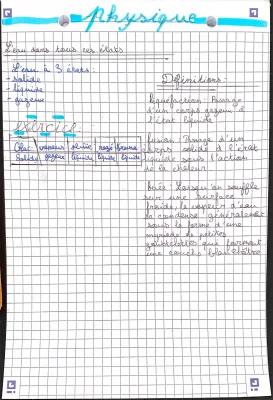 physique
L'eau dans tous ces états
L'eau a 3 états :
- solide
- liquide
- gazeux
Définitions:
liquéfaction Passage
d'un corps gazeux à
l'état liquide
exercice
fusion Passage d'un
corps solide à l'état
liquide sous l'action
de la chaleur
vapeur rosé brume
Solide gazeux liquide liquide liquide
Buée Lorsqu'on souffle
sur une surface
froide, la vapeur d'eau
se condense généralement
sous la forme d'une
myriade de petites
gouttelettes qui forment
une couche blanchâtre